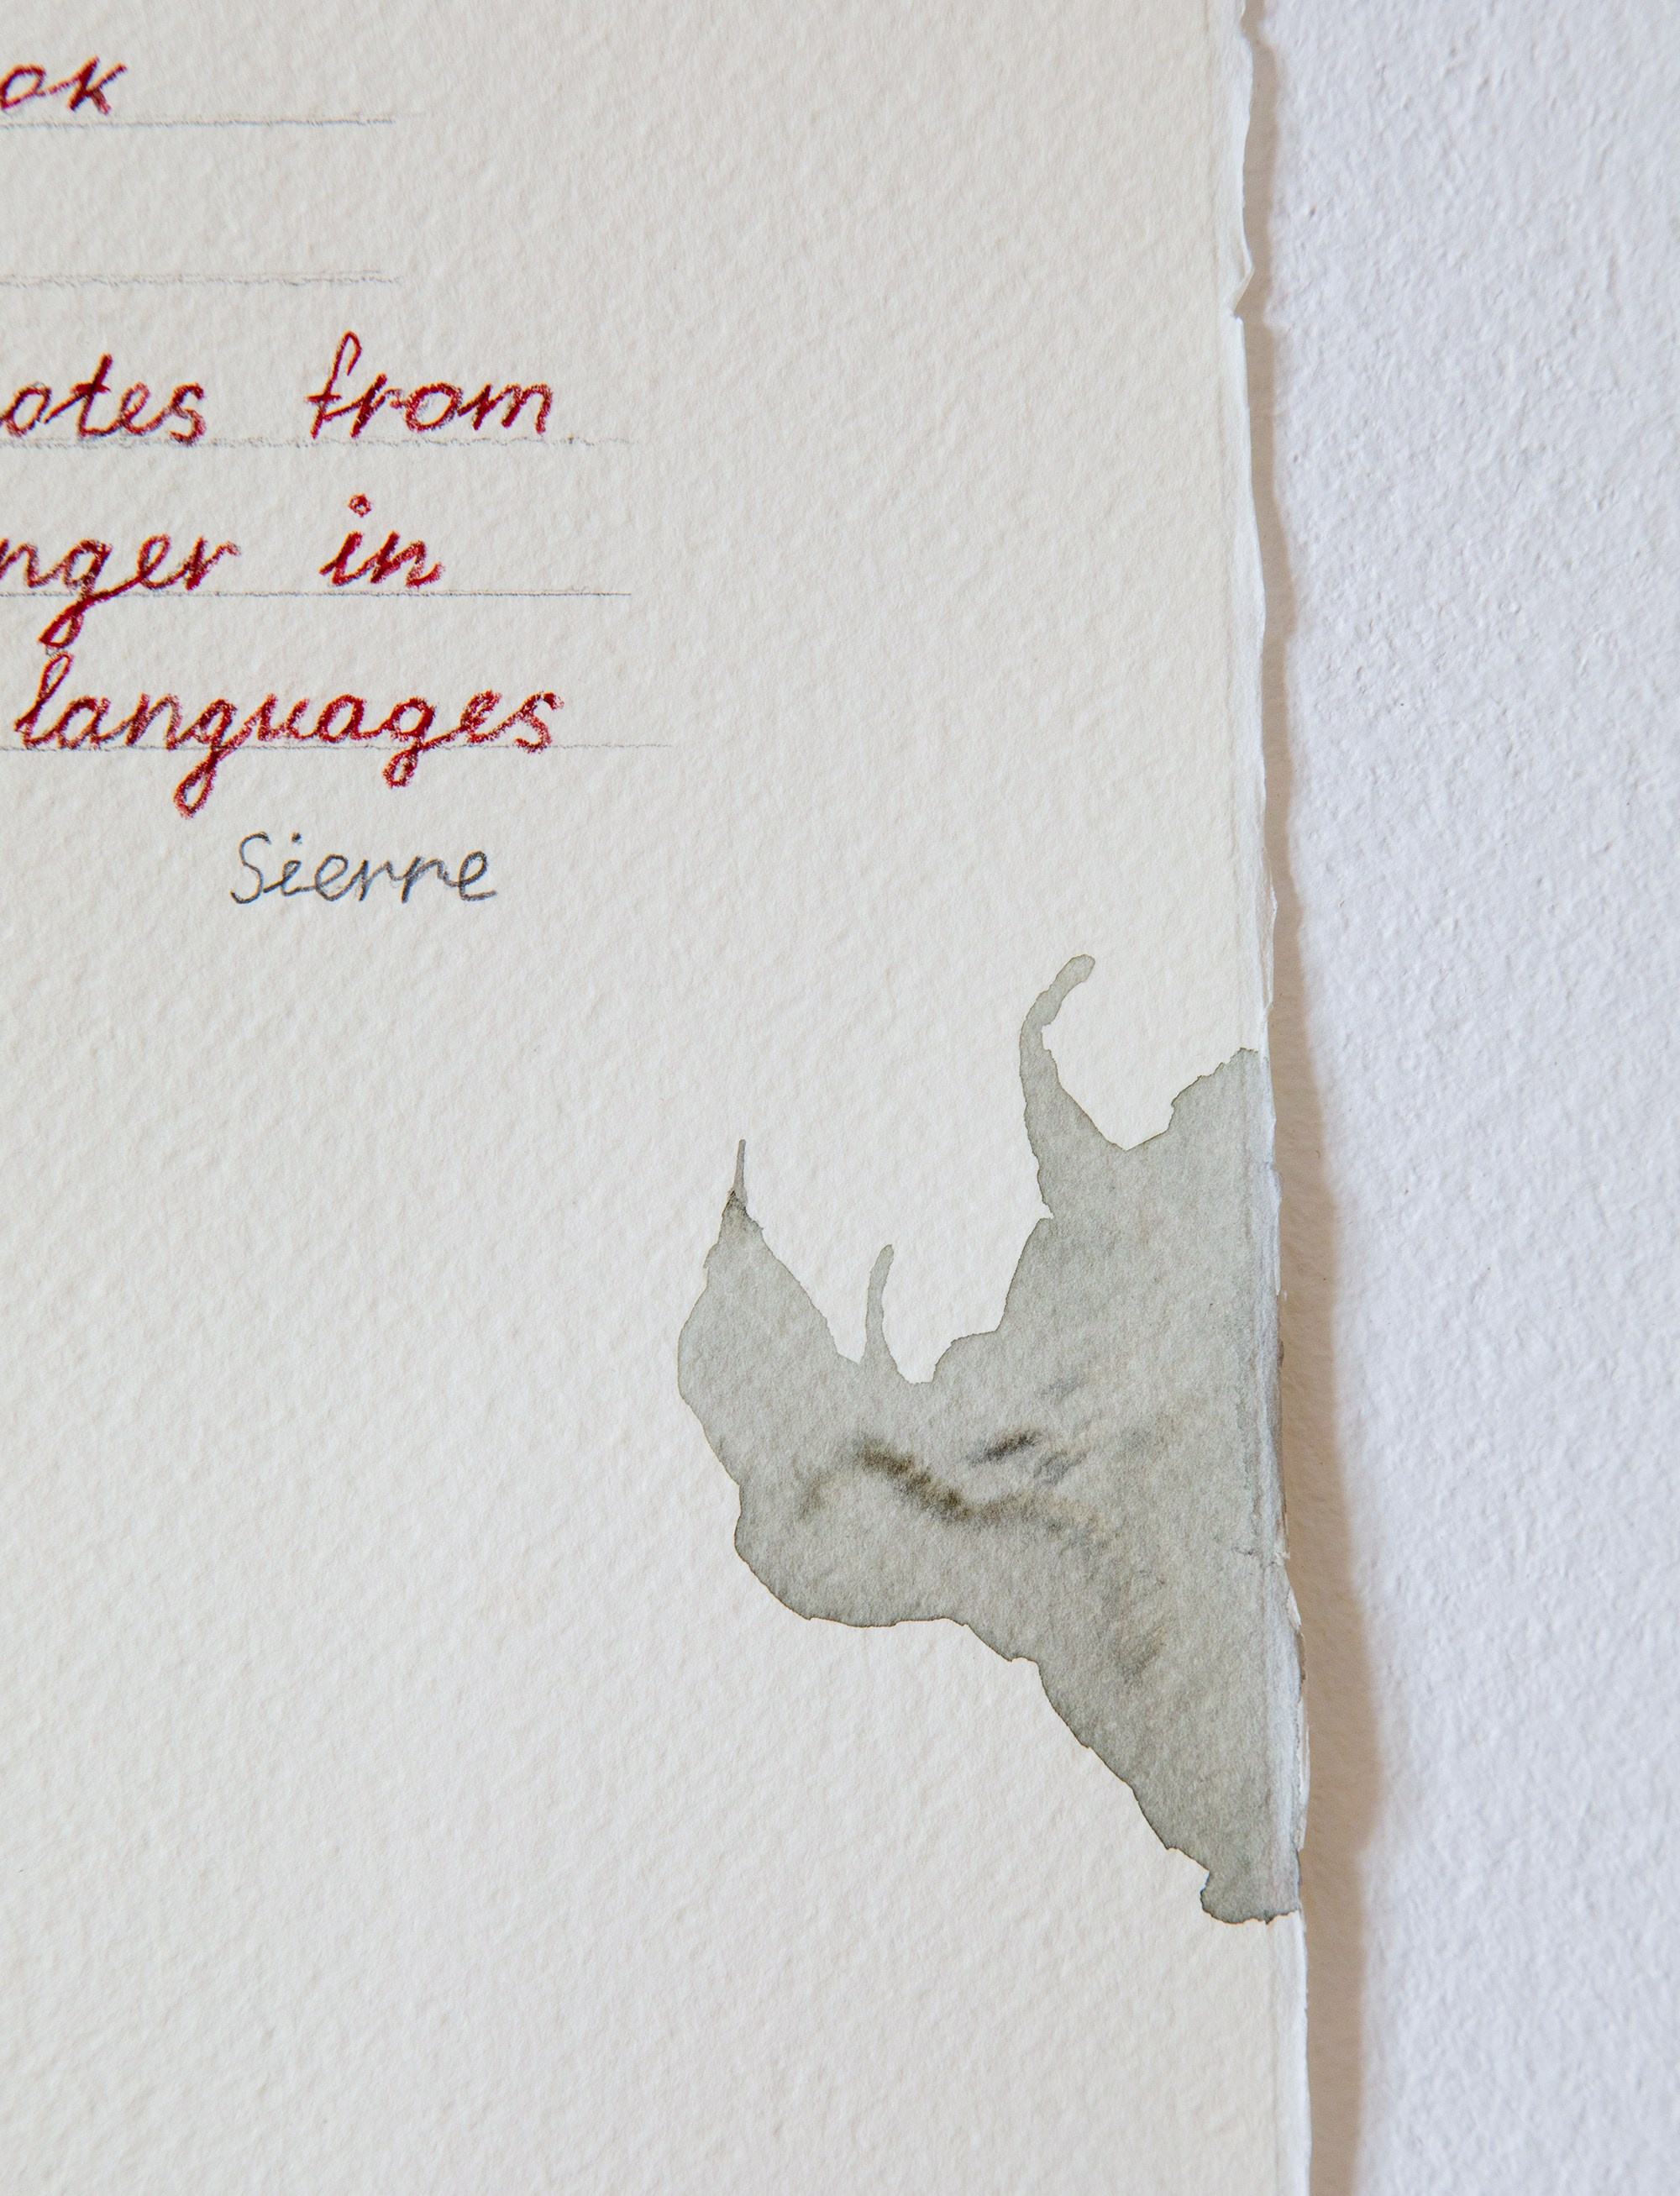 ok
otes from
nger in
languages
Sierre